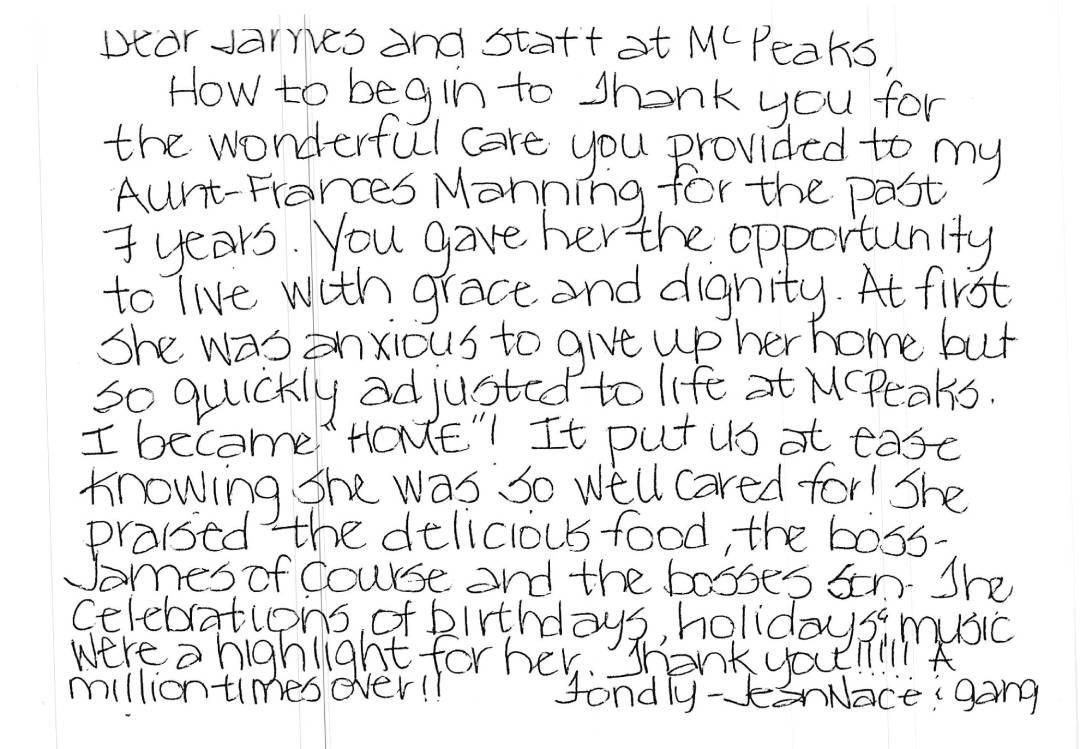 Dear James and Staff at McPeaks,
How to begin to Thank you for
the wonderful care you provided to my
Aunt-Frances Manning for the past
7 years. You gave her the opportunity
to live with grace and dignity. At first
she was anxious to give up her home but
so quickly adjusted to life at McPeaks.
I became "HOME"! It put us at ease
knowing she was so well cared for! She
praised the delicious food, the boss-
James of course and the bosses son- The
celebrations of birthdays, holidays & music
were a highlight for her. Thank you!!!!! A
million times over!! Fondly - Jean Nace & gang